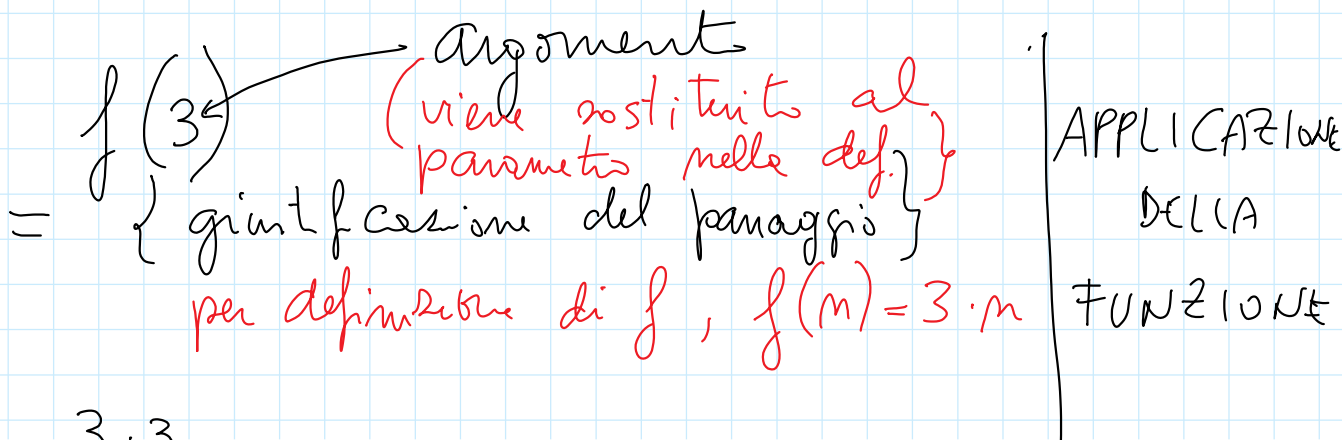 argomento
f(3)
(viene sostituito al
parametro nella def.)
= { giustificazione del passaggio }
per definizione di f, f(n) = 3·n
3·3
APPLICAZIONE
DELLA
FUNZIONE